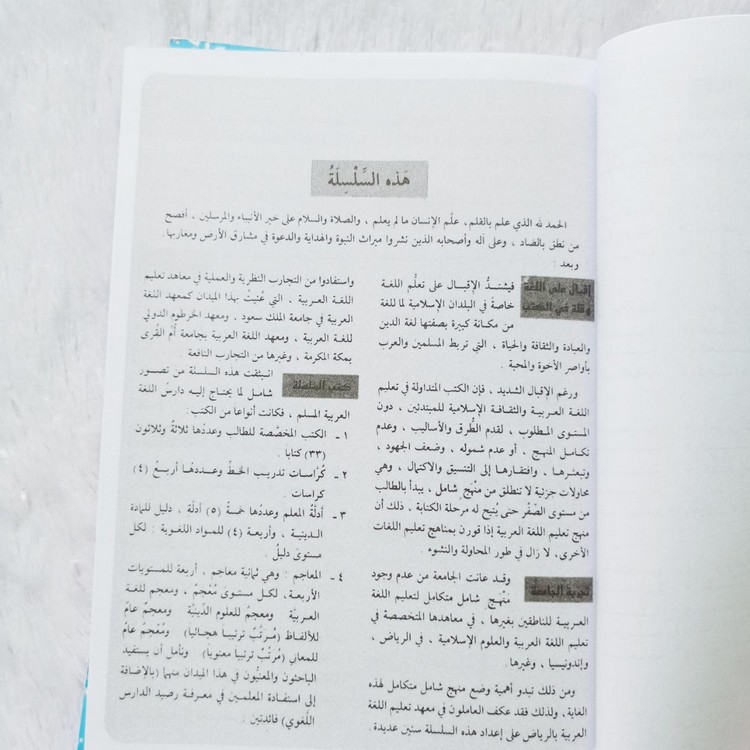 هَذه السِّلْسِلَةُ
الحمد لله الذي علم بالقلم ، علَّم الإنسان ما لم يعلم ، والصلاة والسلام على خير الأنبياء والمرسلين ، أفصح
من نطق بالضاد ، وعلى آله وأصحابه الذين نشروا ميراث النبوة والهداية والدعوة في مشارق الأرض ومغاربها .
وبعد :
إقبال على اللغة
وقلة في الكتب
فيشتدُّ الإقبال على تعلُّم اللغة
خاصةً في البلدان الإسلامية لما للغة
من مكانة كبيرة بصفتها لغة الدين
والعبادة والثقافة والحياة ، التي تربط المسلمين والعرب
بأواصر الأخوة والمحبة .
ورغم الإقبال الشديد ، فإن الكتب المتداولة في تعليم
اللغة العربية والثقافة الإسلامية للمبتدئين ، دون
المستوى المطلوب ، لقدم الطُّرق والأساليب ، وعدم
تكامل المنهج ، أو عدم شموله ، وضعف الجهود ،
وتبعثرها ، وافتقارها إلى التنسيق والاكتمال ، وهي
محاولات جزئية لا تنطلق من منْهَج شامل ، يبدأ بالطالب
من مستوى الصِّفْر حتى يُتيح له مرحلة الكتابة ، ذلك أن
منهج تعليم اللغة العربية إذا قورن بمناهج تعليم اللغات
الأخرى، لا زال في طور المحاولة والنشوء .
تجربة الجامعة
وقد عانت الجامعة من عدم وجود
مَنْهج شامل متكامل لتعليم اللغة
العربية للناطقين بغيرها ، في معاهدها المتخصصة في
تعليم اللغة العربية والعلوم الإسلامية ، في الرياض ،
وإندونيسيا ، وغيرها .
ومن ذلك تبدو أهمية وضع منهج شامل متكامل لهذه
الغاية، ولذلك فقد عكف العاملون في معهد تعليم اللغة
العربية بالرياض على إعداد هذه السلسلة سنين عديدة .
واستفادوا من التجارب النظرية والعملية في معاهد تعليم
اللغة العربية ، التي عُنيتْ بهذا الميدان كمعهد اللغة
العربية في جامعة الملك سعود ، ومعهد الخرطوم الدولي
للغة العربية ، ومعهد اللغة العربية بجامعة أُمِّ القُرى
بمكة المكرمة ، وغيرها من التجارب النافعة
كتب السلسلة
انبثقت هذه السلسلة من تصور
شامل لما يحتاج إليه دارسُ اللغة
العربية المسلم ، فكانت أنواعاً من الكتب :
١ ـ الكتب المخصَّصة للطالب وعددها ثلاثةٌ وثلاثون
(٣٣) كتابا .
٢ ـ كرَّاسات تدريب الخطِّ وعددها أربعُ (٤)
كراسات .
٣ ـ أدلَّةُ المعلم وعددها خمسةُ (٥) أدلَّة ، دليل للمادة
الدينية ، وأربعة (٤) للمواد اللغوية : لكل
مستوىً دليلٌ .
٤ ـ المعاجم : وهي ثمانية معاجم ، أربعة للمستويات
الأربعة، لكل مستوى مُعْجمٌ ، ومعجم للغة
العربية ومعجمٌ للعلوم الدِّينيَّة ومعجمٌ عامٌّ
للألفاظ (مُرتَّبٌ ترتيبا هجائياً) ومُعْجمٌ عامٌّ
للمعاني (مرتَّبٌ ترتيبا معنوياً) ونأمل أن يستفيد
الباحثون والمعنيُّون في هذا الميدان منهما (بالإضافة
إلى استفادة المعلمين في معرفة رصيد الدارس
اللُّغوي) فائدتين :